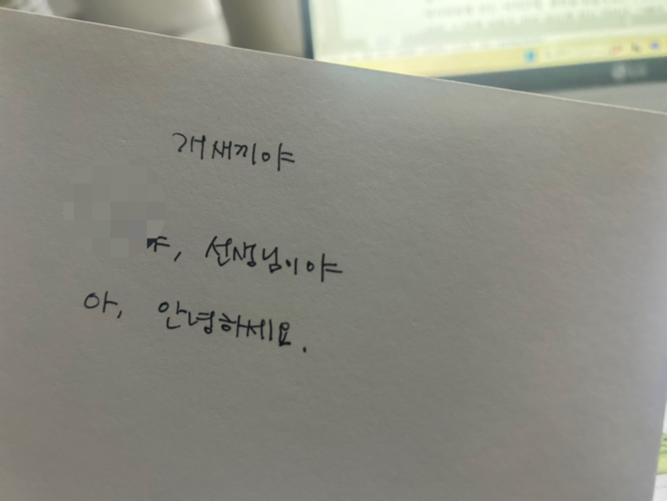 개새끼야
야, 선생님이야
아, 안녕하세요.